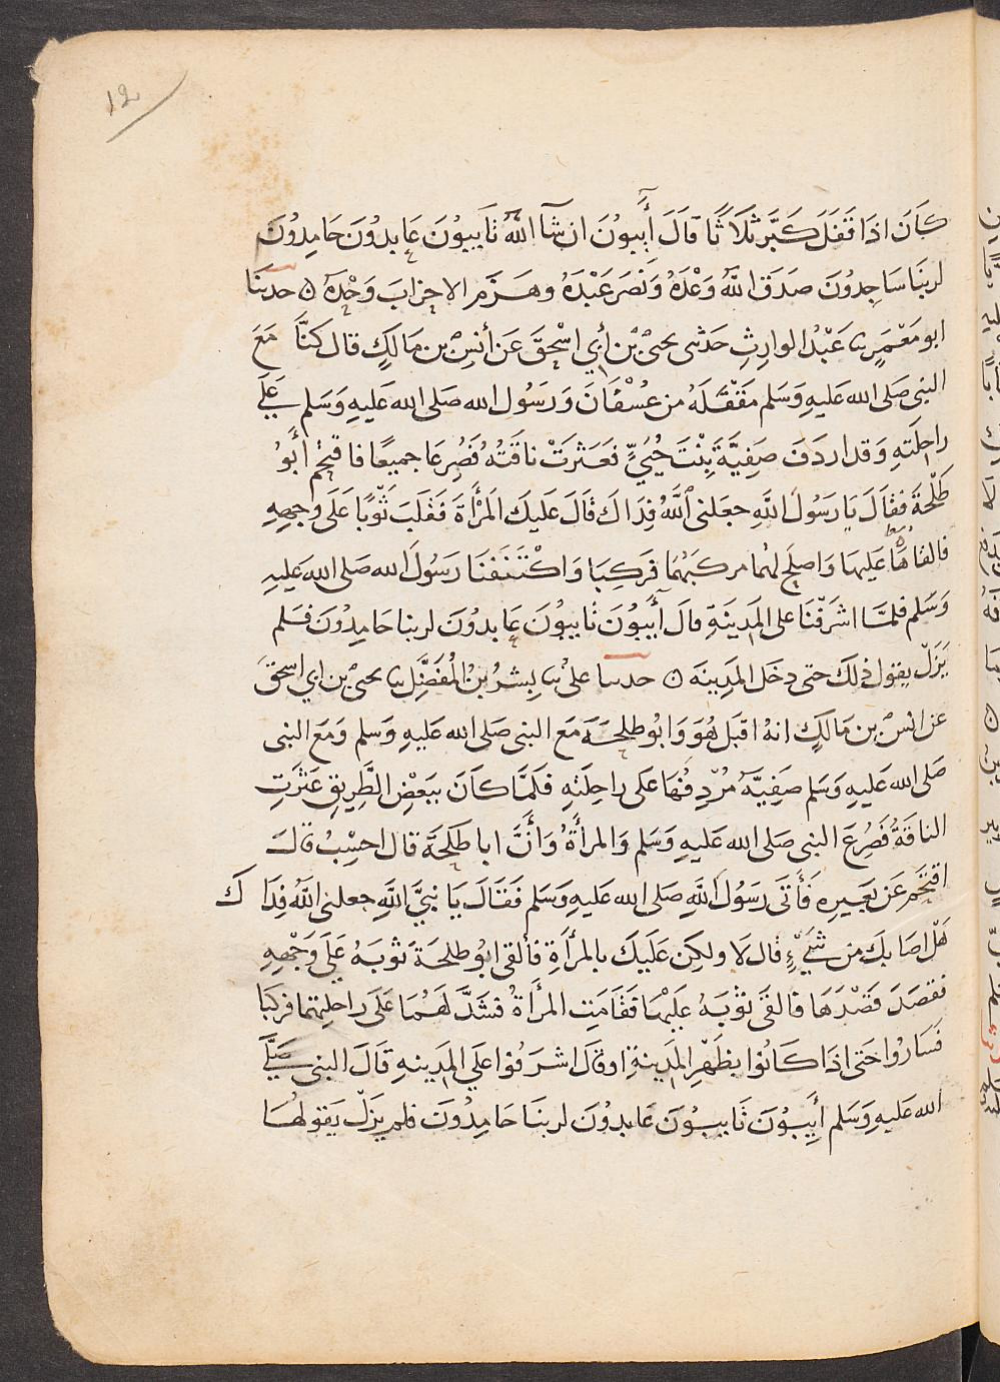 ١٢
كَانَ اذَا قَفَلَ كَبَّرَ ثَلَاثًا قَالَ أَيِبُونَ ان شآ اللهُ تَايبُونَ عَابدُونَ حَامِدُونَ
لربنَا سَاجدُونَ صَدَقَ اللهُ وَعْدَهُ وَنَصَرَ عَبْدَهُ وهَزَمَ الاحزابَ وَحْدَهُ ۝ حدثنا
ابو مَعْمَرٍ عَبْدُ الوارِثِ حَدثنى يحيىٰ بْن أبي اسْحقَ عَن أنسِ بن مَالكٍ قال كنَّا مَعَ
النبى صَلى الله عَليهِ وَسَلم مَقْفَلَهُ من عُسْفَانَ وَرَسُول الله صَلى الله عَليهِ وَسَلم عَلَى
راحِلَتهِ وَقد اردَفَ صَفِيَّةَ بِنْتَ حُيَيٍّ فَعَثرَتْ ناقَتُهُ فَصُرِعَا جميعًا فاقتحم أَبُو
طَلْحَةَ فقَالَ يَا رَسُولَ اللهِ جعَلنى اللهُ فِدَاكَ قَالَ عَليكَ المَرْأَةَ فَقَلَبَ ثَوْبًا عَلَى وَجههِ
فالقاهَا عَليهَا وَاصلَح لهُما مركبَهُمَا فَركِبَا وَاكْتَنَفنَا رَسُولَ الله صَلى الله عَليهِ
وَسَلم فلمَّا اشرَفْنَا على المَدينَةِ قالَ أَيبُونَ تَايبُونَ عَابدُونَ لربنا حَامِدُونَ فَلم
يَزَلْ يقول ذلكَ حتى دخَل المَدِينَة ۝ حدثنا علىٌ بِشرُ بْنُ المُفَضَّل يحيىٰ بْن ابي اسحقَ
عَن انسِ بن مَالكٍ انهُ اقبَل هُوَ وَابُو طلحَةَ مَع النبى صَلى الله عَليهِ وَسَلم وَمَع النبى
صَلى الله عَليهِ وَسَلم صَفِيَّةُ مُرْدِفُهَا عَلى راحِلَتهِ فَلمَّا كَانَ ببَعْضِ الطَّرِيقِ عَثَرَتِ
الناقَةُ فَصُرِعَ النبى صَلى الله عَليهِ وَسَلم وَالمرأَةُ وَأَنَّ ابا طَلحَةَ قال احسِبُ قالَ
اقتحَم عَن بعَيرِهِ فَأَتَى رسُولَ اللهِ صَلى الله عَليهِ وَسَلم فَقَالَ يَا نبىَّ اللهِ جعلنى اللهُ فِدَا كَ
هَل اصَابكَ مِن شَيْءٍ قال لَا ولكِن عَلَيكَ بالمرأَةِ فأَلقى ابُو طلحَةَ ثوْبهُ عَلَى وَجْههِ
فقصَدَ قَصْدَهَا فالقَى ثوْبهُ عَليْهَا فقَامَتِ المرْأَةُ فشَدَّ لهُمَا عَلَى راحِلتِهمَا فركبَا
فَسَارُوا حَتى اذَا كَانُوا بظَهْرِ المَدينةِ اوقالَ اشرَفوُا عَلَى المَدِينَهِ قَالَ النبى صَلَّى
الله عَليهِ وَسَلم أَيِبُونَ تَايبُونَ عَابدُونَ لربنَا حَامِدُونَ فلم يزَلْ يَقولهَا